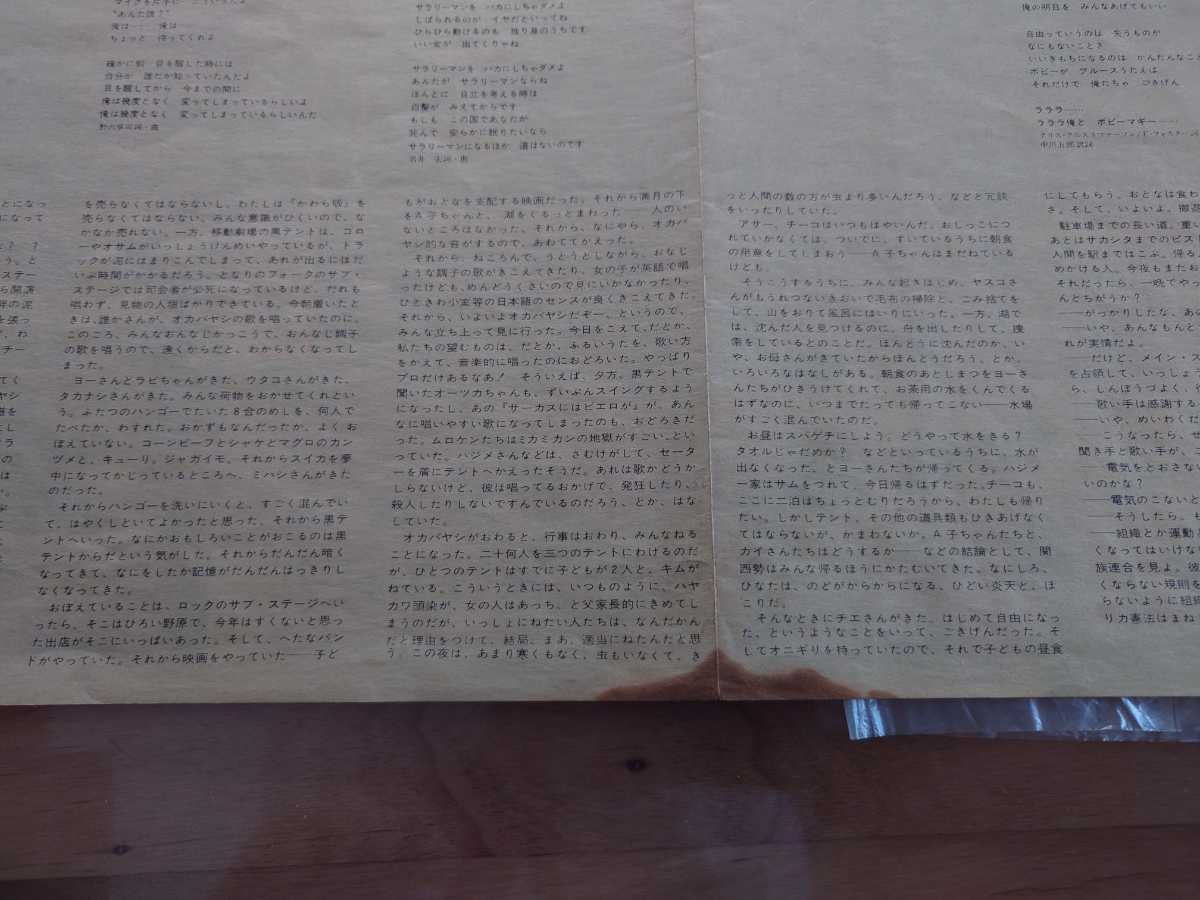 俺は…… 俺は……
ちょっと 待ってくれよ
確かに朝 目を醒した時には
自分が 誰だか知っていたんだよ
目を醒してから 今までの間に
俺は幾度となく 変ってしまっているらしいよ
俺は幾度となく 変ってしまっているらしいんだ
サラリーマンを バカにしちゃダメよ
しばられるのが イヤだといってね
ひらひら動けるのも 独り身のうちです
いい女が 出てくりゃね
サラリーマンを バカにしちゃダメよ
あんたが サラリーマンならね
ほんとに 自立を考える時は
白髪が みえてからです
もしも この国であなたが
死んで 安らかに眠りたいなら
サラリーマンになるほか 道はないのです
俺の明日を みんなあげてもいい
自由っていうのは 失うものが
なにもないことさ
いいきもちになるのは かんたんなこと
ボビーが ブルースうたえば
それだけで 俺たちゃ ごきげん
ラララ……
ラララ俺と ボビーマギー……
中川五郎訳詞
を売らなくてはならないし、わたしは『かわら版』を
売らなくてはならない。みんな意識がひくいので、な
かなか売れない。一方、移動劇場の黒テントは、ゴロ
ーやオサムがいっしょうけんめいやっているが、トラ
ックが泥にはまりこんでしまって、あれが出るにはだ
いぶ時間がかかるだろう。となりのフォークのサブ・
ステージでは司会者が必死になっているけど、だれも
唱わず、見物の人垣ばかりできている。今朝着いたと
きは、誰かさんが、オカバヤシの歌を唱っていたのに。
このころ、みんなおんなじかっこうで、おんなじ調子
の歌を唱うので、遠くからだと、わからなくなってし
まった。
ヨーさんとラビちゃんがきた、ウタコさんがきた、
タカナシさんがきた。みんな荷物をおかせてくれとい
う。ふたつのハンゴーでたいた8合のめしを、何人で
たべたか、わすれた。おかずもなんだったか、よくお
ぼえていない。コーンビーフとシャケとマグロのカン
ヅメと、キューリ。ジャガイモ、それからスイカを夢
中になってかじっているところへ、ミハシさんがきた
のだった。
それからハンゴーを洗いにいくと、すごく混んでい
て、はやくしといてよかったと思った、それから黒テ
ントへいった。なにかおもしろいことがおこるのは黒
テントからだという気がした。それからだんだん暗く
なってきて、なにをしたか記憶がだんだんはっきりし
なくなってきた。
おぼえていることは、ロックのサブ・ステージへい
ったら、そこはひろい野原で、今年はすくないと思っ
た出店がそこにいっぱいあった。そして、へたなバン
ドがやっていた。それから映画をやっていた——子ど
もがおとなを支配する映画だった。それから満月の下
をA子ちゃんと、湖をぐるっとまわった——人のい
ないところはなかった。それから、なにやら、オカバ
ヤシ的な音がするので、あわててかえった。
それから、ねころんで、うとうとしながら、おなじ
ような調子の歌がきこえてきたり、女の子が英語で唱
ったけども、めんどうくさいので見にいかなかったり、
ひときわ小室等の日本語のセンスが良くきこえてきた。
それから、いよいよオカバヤシだぞー、というので、
みんな立ち上って見に行った。今日をこえて、だとか、
私たちの望むものは、だとか、ふるいうたを、歌い方
をかえて、音楽的に唱ったのにおどろいた。やっぱり
プロだけあるなあ！ そういえば、夕方。黒テントで
聞いたオーツカちゃんも、ずいぶんスイングするよう
になったし、あの『サーカスにはピエロが』が、あん
なに唱いやすい歌になってしまったのも、おどろきだ
った。ムロケンたちはミカミカンの地獄がすごい、とい
っていた。ハジメさんなどは、さむけがして、セータ
ーを着にテントへかえったそうだ。あれは歌かどうか
しらないけど、彼は唱ってるおかげで、発狂したり、
殺人したりしないですんでいるのだろう、とか、はな
していた。
オカバヤシがおわると、行事はおわり、みんなねる
ことになった。二十何人を三つのテントにわけるのだ
が、ひとつのテントはすでに子どもが2人と、キムが
ねている。こういうときには、いつものように、ハヤ
カワ頭染が、女の人はあっち、と父家長的にきめてし
まうのだが、いっしょにねたい人たちは、なんだかん
だと理由をつけて、結局、まあ、適当にねたんだと思
う。この夜は、あまり寒くもなく、虫もいなくて、き
っと人間の数の方が虫より多いんだろう、などと冗談
をいったりしていた。
アサ、チーコはいつもはやいんだ。おしっこにつ
れていかなくては、ついでに、すいているうちに朝食
の用意をしてしまおう——A子ちゃんはまだねている
けども。
そうこうするうちに、みんな起きはじめ、ヤスコさ
んがもうれつないきおいで毛布の掃除と、ごみ捨てを
して、山をおりて風呂にはいりにいった。一方、湖で
は、沈んだ人を見つけるのに、舟を出したりして、捜
索をしているとのことだ。ほんとうに沈んだのか、い
や、お母さんがきていたからほんとうだろう。とか、
いろいろなはなしがある。朝食のあとしまつをヨーさ
んたちがひきうけてくれて、お茶用の水をくんでくる
はずなのに、いつまでたっても帰ってこない——水場
がすごく混んでいたのだ。
お昼はスパゲチにしよう。どうやって水をきる？
タオルじゃだめか？ などといっているうちに、水が
出なくなった、とヨーさんたちが帰ってくる。ハジメ
一家はサムをつれて、今日帰るはずだった。チーコも、
ここに二泊はちょっとむりだろうから、わたしも帰り
たい。しかしテント、その他の道具類もひきあげなく
てはならないが、かまわないか、A子ちゃんたちと、
カイさんたちはどうするか——などの結論として、関
西勢はみんな帰るほうにかたむいてきた。なにしろ、
ひなたは、のどがからからになる、ひどい炎天と、ほ
こりだ。
そんなときにチエさんがきた、はじめて自由になっ
た、というようなことをいって、ごきげんだった。そ
してオニギリを持っていたので、それで子どもの昼食
にしてもらう、おとなは食わ
さ。そして、いよいよ、撤
駐車場までの長い道、重い
あとはサカシタまでのピス
人間を駅まではこぶ、帰る
めかける人、今夜もまた
それだったら、一晩でやっ
んとちがうか？
——がっかりしたな、あの
——いや、あんなもんと
れが実情だよ。
——だけど、メイン・ス
を占領して、いっしょう
ら、しんぼうづよく、そ
——歌い手は感謝する
——いや、めいわくだ
こうなったら、せ
聞き手と歌い手が、こ
——電気をとおさな
いのかな？
——電気のこないと
——そうしたら、も
——組織とか運動と
くなってはいけな
族連合を見よ。彼
くならない規則を
らないように組織
リカ憲法はまね